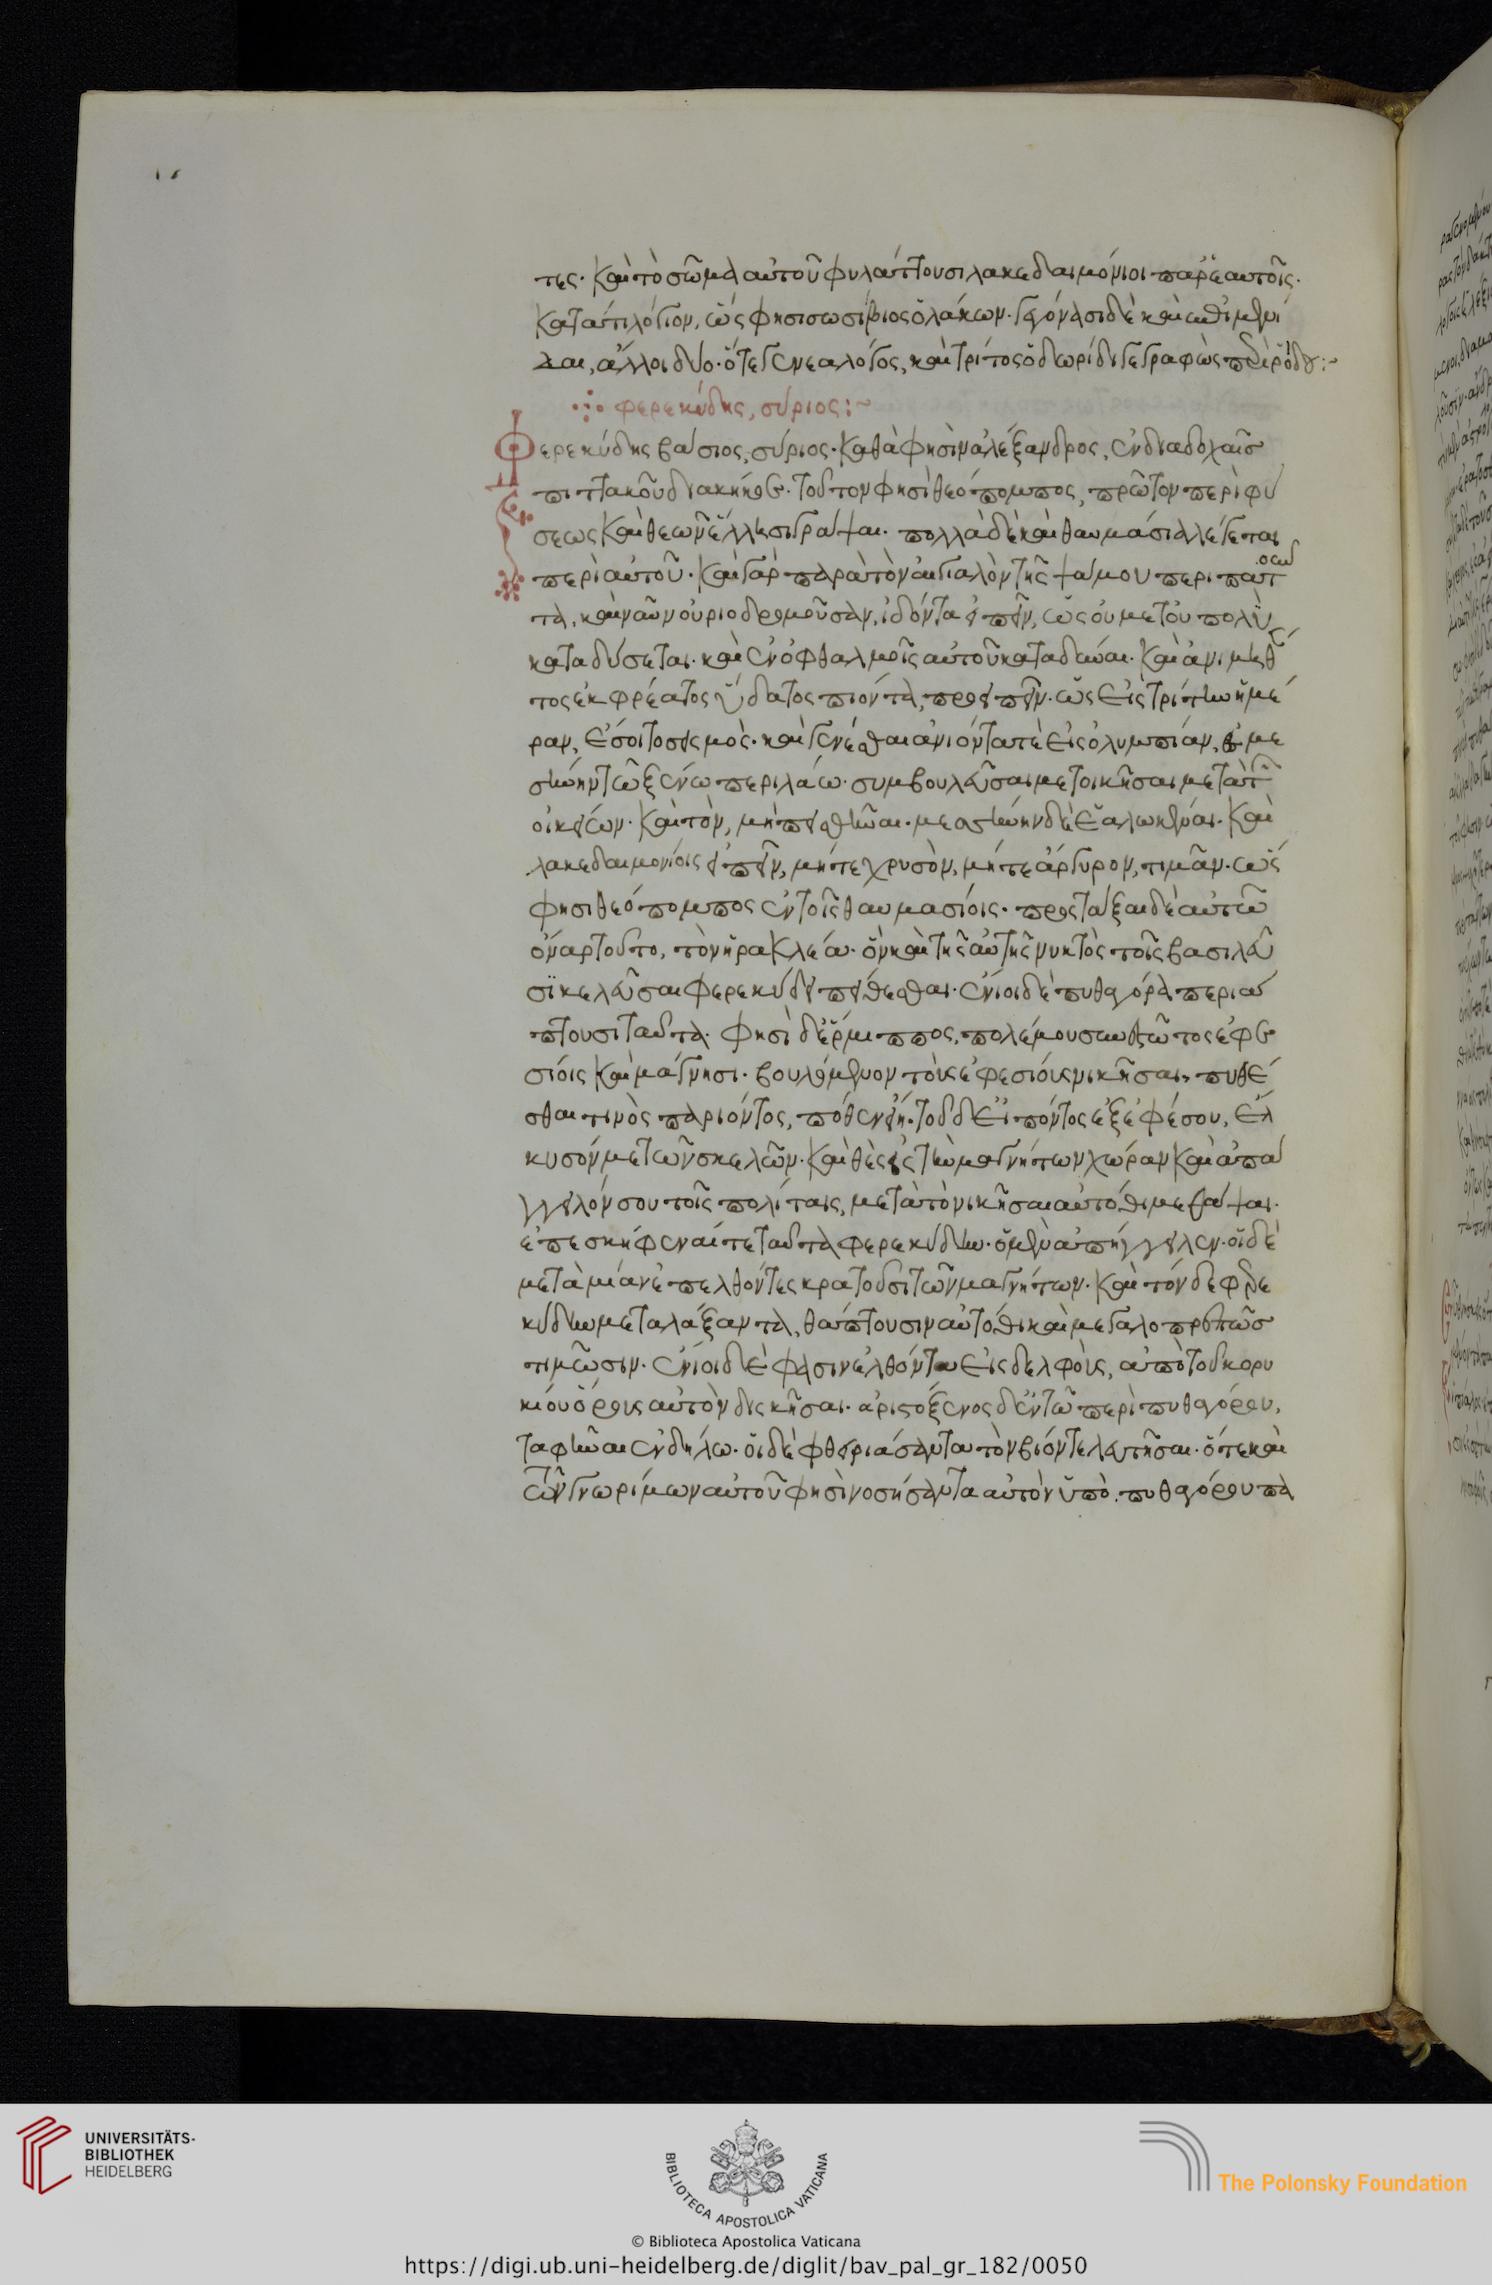 τες· καὶ τὸ σῶμα αὐτοῦ φυλάττουσι λακεδαιμόνιοι παρ' ἑαυτοῖς.
κατά τι λόγιον, ὥς φησι σωσίβιος ὁ λάκων· γεγόνασι δὲ καὶ ἐπιμενί
δαι, ἄλλοι δύο· ὅ τε γενεαλόγος, καὶ τρίτος ὁ δωρίδι γεγραφὼς περὶ ῥόδου:~
φερεκύδης, σύριος:~
Φερεκύδης βάσιος, σύριος· καθὰ φησὶν ἀλέξανδρος, ἐν διαδοχαῖσ
πιττακοῦ διακήκοε. τοῦτον φησὶ θεόπομπος, πρῶτον περὶ φύ
σεως καὶ θεῶν ἕλλησι γράψαι. πολλὰ δὲ καὶ θαυμάσια λέγεται
περὶ αὐτοῦ. καὶ γὰρ παρὰ τὸν αἰγιαλὸν τῆς ψάμου περιπατ
τα, καὶ ναῦν οὐριοδρομοῦσαν, ἰδόντα εἰπεῖν, ὡς οὐ μετ' οὐ πολὺ
καταδύσεται. καὶ ἐν ὀφθαλμοῖς αὐτοῦ καταδῦναι. καὶ ἀνιμηθέν
τος ἐκ φρέατος ὕδατος πιόντα, προειπεῖν. ὡς εἰς τρίτην ἡμέ
ραν, ἔσοιτο σεισμὸς. καὶ γενέσθαι ἀνιόντα τὲ εἰς ὀλυμπίαν, ἐς με
σήνην τῶ ξένω περιλάω. συμβουλεῦσαι μετοικῆσαι μετὰ τῶν
οἰκείων. καὶ τὸν, μὴ πεισθῆναι. μεσσήνην δὲ ἑαλωκέναι. καὶ
λακεδαιμονίοις εἰπεῖν, μήτε χρυσὸν, μήτε ἄργυρον, τιμᾶν. ὥς
φησι θεόπομπος ἐν τοῖς θαυμασίοις. προστάξαι δὲ αὐτῶ
ὄναρ τοῦτο, τὸν ἡρακλέα. ὃν καὶ τῆς αὐτῆς νυκτὸς τοῖς βασιλεῦ
σι κελεῦσαι φερεκύδει πείθεσθαι. ἔνιοι δὲ πυθαγόρα περιά
πτουσι ταῦτα. φησὶ δ' ἕρμιππος, πολέμου συνεστῶτος ἐφε
σίοις καὶ μάγνησι. βουλόμενον τοὺς ἐφεσίους νικῆσαι, πυθέ
σθαι τινὸς παριόντος, πόθεν εἴη. τοῦ δ' εἰπόντος ἐξ ἐφέσου, ἕλ
κυσόν με τῶν σκελῶν. καὶ θὲς εἰς τὴν μαγνήτων χώραν καὶ ἀπά
γγειλόν σου τοῖς πολίταις, μετὰ τὸ νικῆσαι αὐτόθι με θάψαι.
ἐπεσκηφέναι τε ταῦτα φερεκύδην. ὁ μὲν ἀπήγγειλεν. οἱ δὲ
μετὰ μίαν ἐπελθόντες κρατοῦσι τῶν μαγνήτων. καὶ τόν δε φερε
κύδην μεταλάξαντα, θάπτουσιν αὐτόθι καὶ μεγαλοπρεπῶσ
τιμῶσιν. ἔνιοι δὲ φασιν ἐλθόντα εἰς δελφοὺς, ἀπὸ τοῦ κορυ
κίου ὄρους αὑτὸν δισκῆσαι. ἀριστόξενος δ' ἐν τῶ περὶ πυθαγόρου,
ταφῆναι ἐν δήλω. οἱ δὲ φθειριάσαντα τὸν βίον τελευτῆσαι. ὅτε καὶ
τῶν γνωρίμων αὐτοῦ φησὶ νοσήσαντα αὐτὸν ὑπὸ πυθαγόρου τα
UNIVERSITÄTS-
BIBLIOTHEK
HEIDELBERG
BIBLIOTECA APOSTOLICA VATICANA
The Polonsky Foundation
© Biblioteca Apostolica Vaticana
https://digi.ub.uni-heidelberg.de/diglit/bav_pal_gr_182/0050